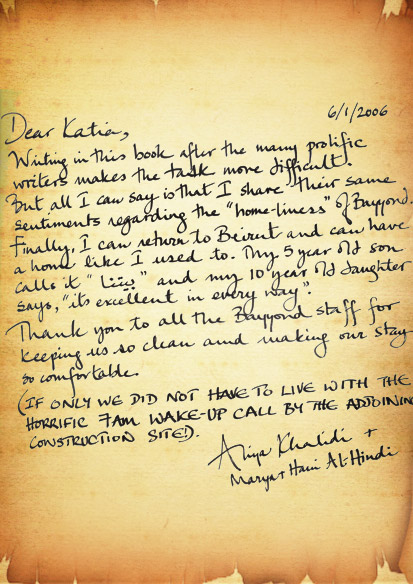 6/1/2006
Dear Katia,
Writing in this book after the many prolific
writers makes the task more difficult.
But all I can say is that I share their same
sentiments regarding the "home-liness" of Bayyond.
Finally, I can return to Beirut and can have
a home like I used to. My 5 year old son
calls it "بيتنا" and my 10 year old daughter
says, "it's excellent in every way".
Thank you to all the Bayyond staff for
keeping us so clean and making our stay
so comfortable.
(IF ONLY WE DID NOT HAVE TO LIVE WITH THE
HORRIFIC 7AM WAKE-UP CALL BY THE ADJOINING
CONSTRUCTION SITE!).
Aliya Khalidi +
Marya + Hani Al-Hindi